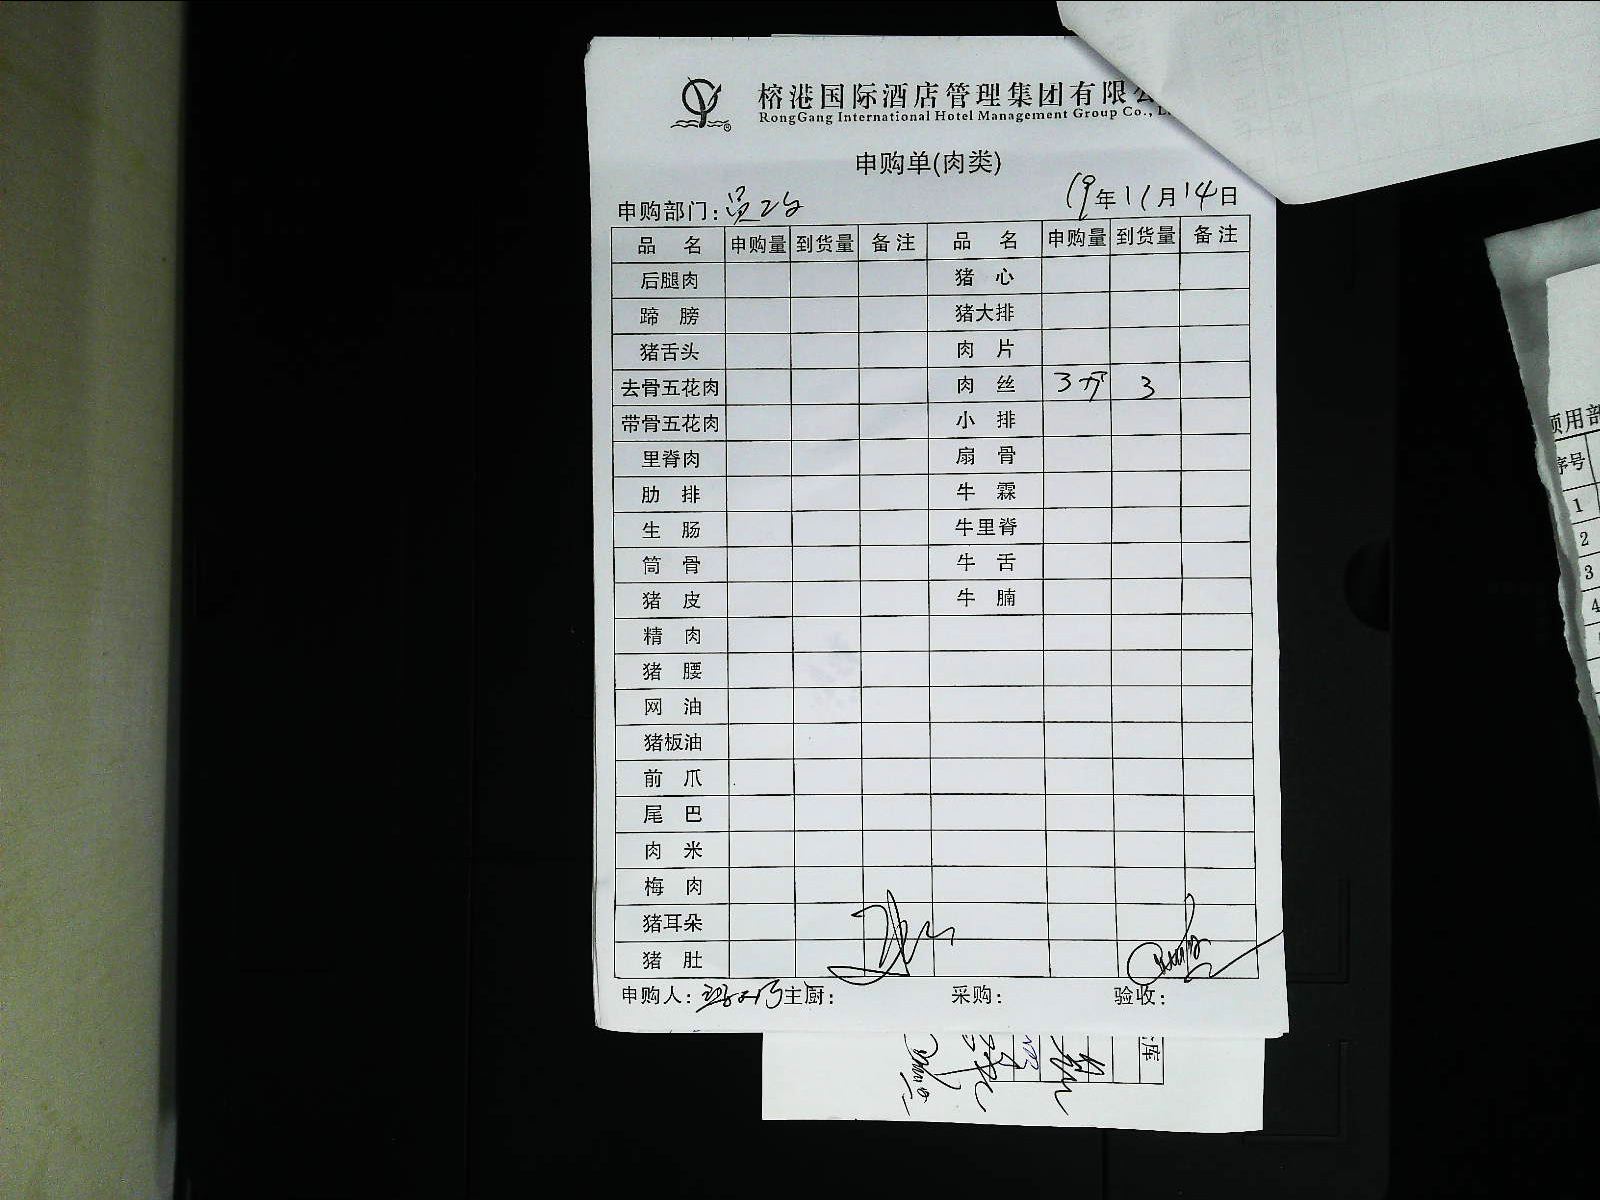 榕港国际酒店管理集团有限公
RongGang International Hotel Management Group Co., L
申购单(肉类)
申购部门: 员工 19年11月14日
品 名 申购量 到货量 备注 品 名 申购量 到货量 备注
后腿肉 猪 心
蹄 膀 猪大排
猪舌头 肉 片
去骨五花肉 肉 丝 3斤 3
带骨五花肉 小 排
里脊肉 扇 骨
肋 排 牛 霖
生 肠 牛里脊
筒 骨 牛 舌
猪 皮 牛 腩
精 肉
猪 腰
网 油
猪板油
前 爪
尾 巴
肉 米
梅 肉
猪耳朵
猪 肚
申购人: 主厨: 采购: 验收:
库
领用部
序号
1
2
3
4